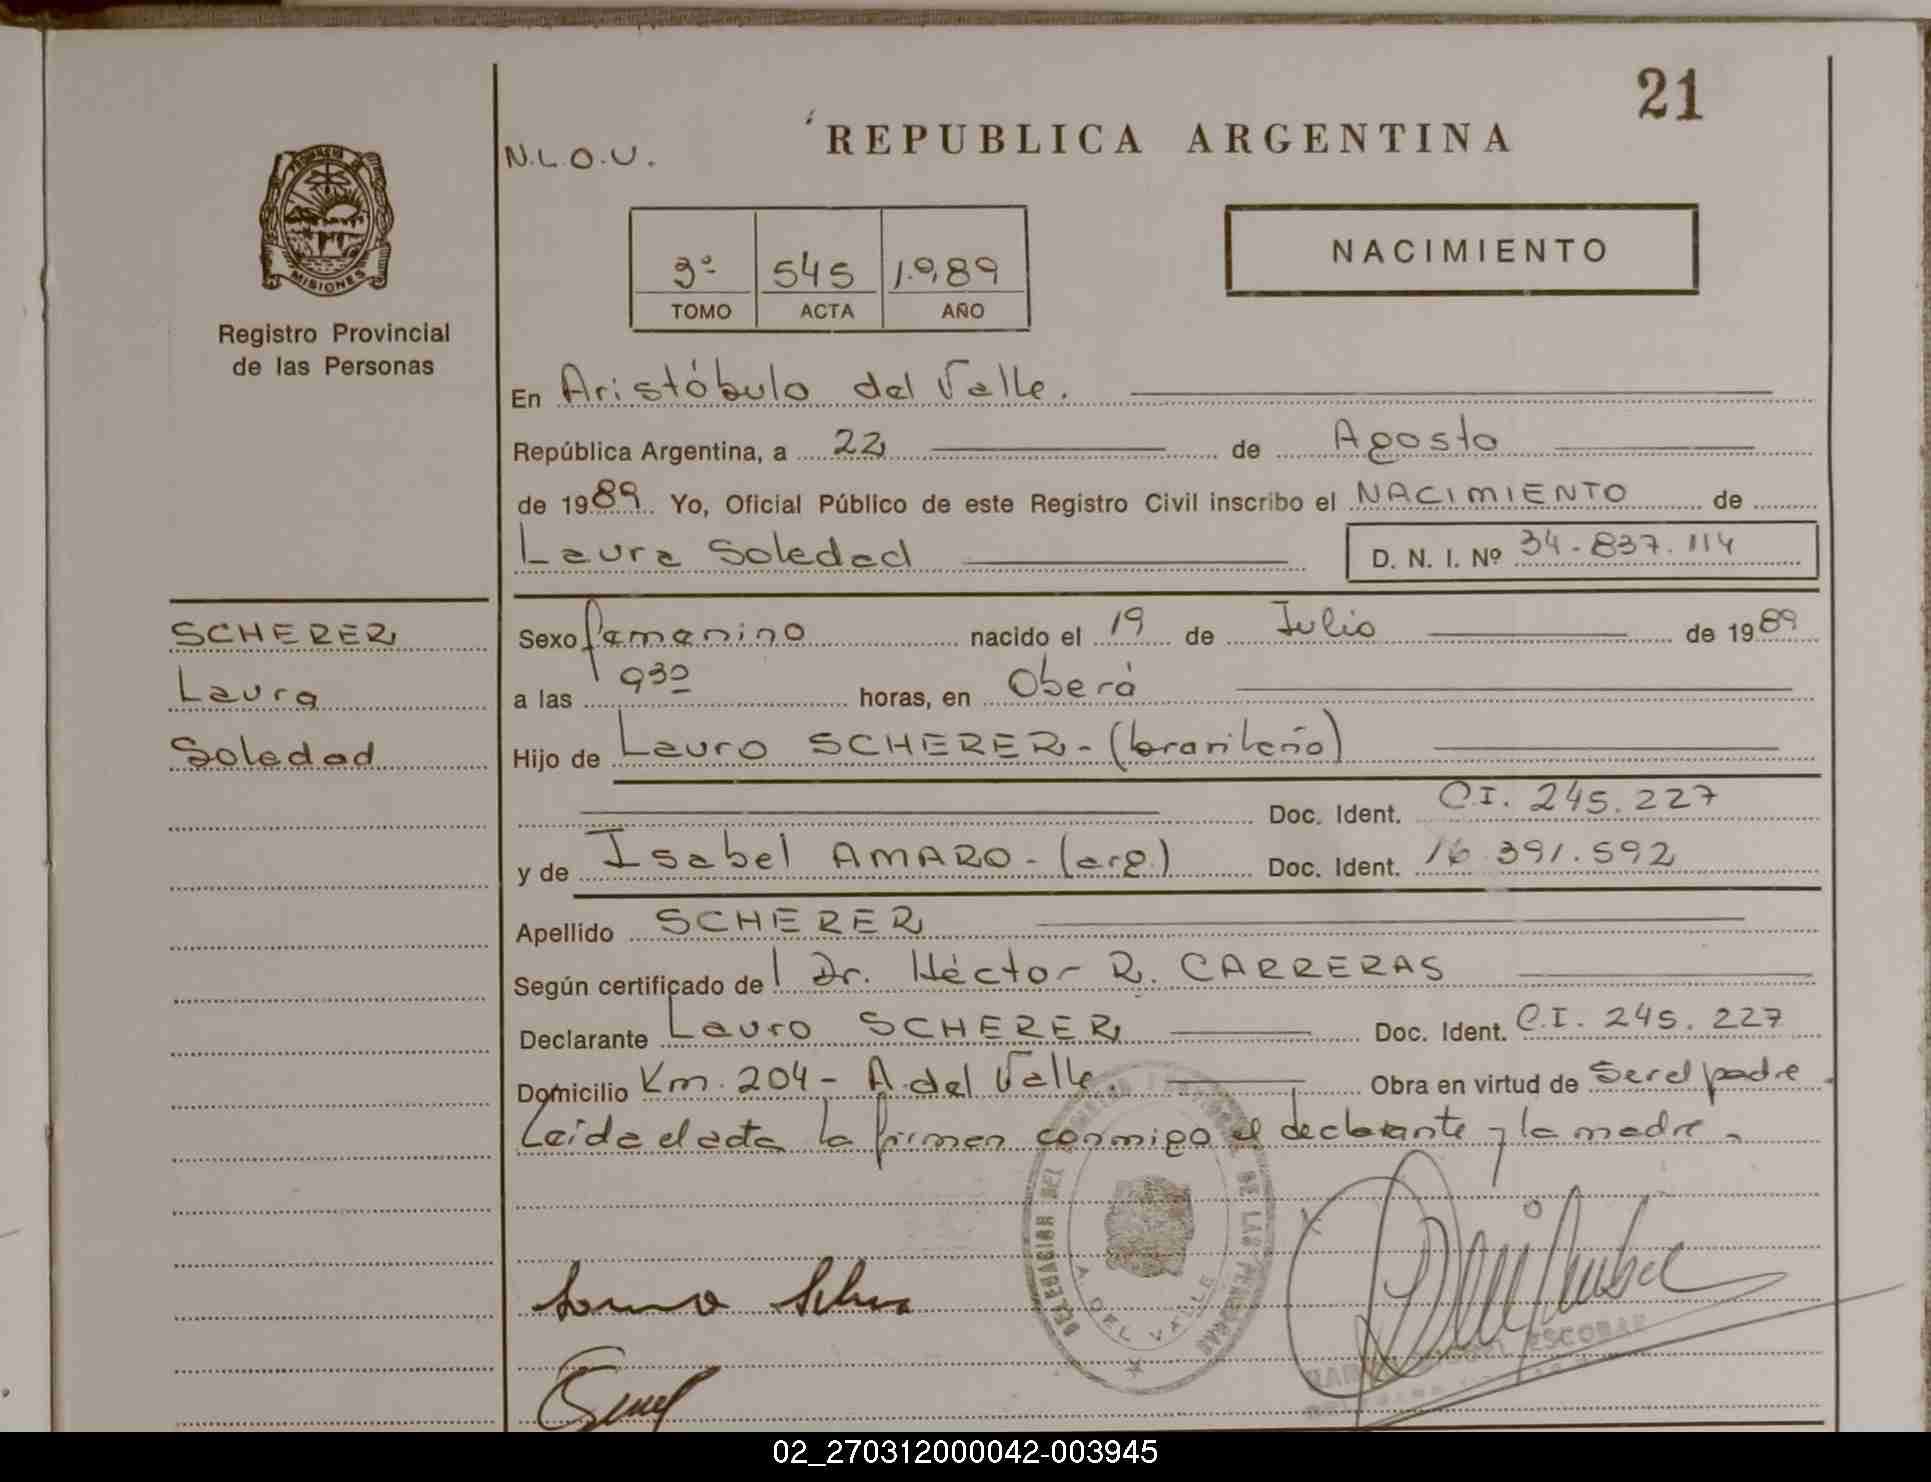 21
REPUBLICA ARGENTINA
N.L.O.U.
NACIMIENTO
PROVINCIA DE MISIONES
Registro Provincial
de las Personas
3º 545 1.989
TOMO ACTA AÑO
En Aristóbulo del Valle.
República Argentina, a 22 de Agosto
de 1989 Yo, Oficial Público de este Registro Civil inscribo el NACIMIENTO de
Laura Soledad D. N. I. Nº 34.837.114
SCHERER
Laura
Soledad
Sexo femenino nacido el 19 de Julio de 1989
a las 930 horas, en Oberá
Hijo de Lauro SCHERER - (brasileño)
Doc. Ident. C.I. 245.227
y de Isabel AMARO - (arg.) Doc. Ident. 16.391.592
Apellido SCHERER
Según certificado de Dr. Héctor R. CARRERAS
Declarante Lauro SCHERER Doc. Ident. C.I. 245.227
Domicilio Km. 204 - A. del Valle. Obra en virtud de Ser el padre.
Leída el acta la firman conmigo el declarante y la madre.
DELEGACION DEL REGISTRO PROVINCIAL DE LAS PERSONAS
A. DEL VALLE
ESCOBAR
02_270312000042-003945